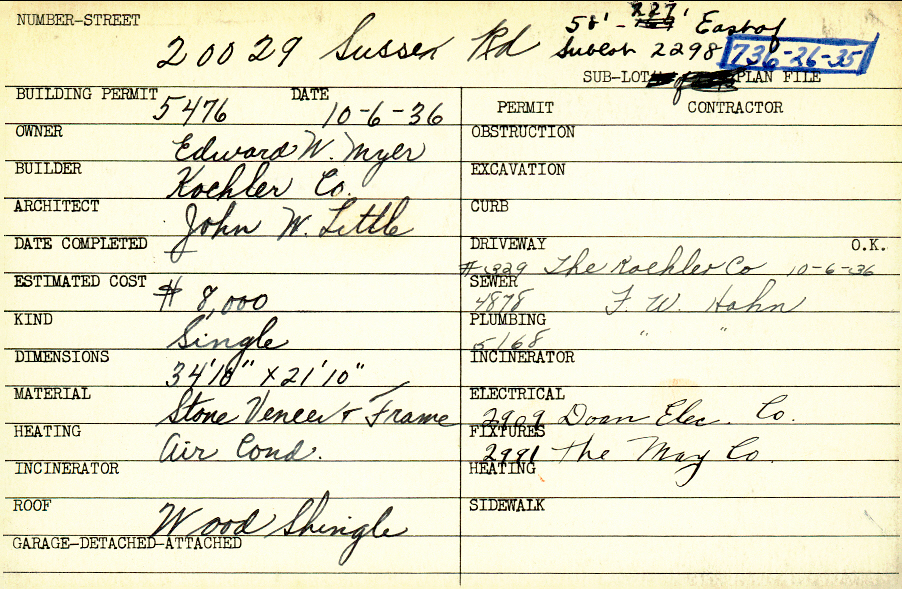 NUMBER-STREET
20029 Sussex Rd
58' - 227' East of
Sublot 2298
736-26-35
SUB-LOT PLAN FILE
BUILDING PERMIT 5476 DATE 10-6-36
OWNER Edward W. Myer
BUILDER Koehler Co.
ARCHITECT John W. Little
DATE COMPLETED
ESTIMATED COST $ 8,000
KIND Single
DIMENSIONS 34'10" x 21'10"
MATERIAL Stone Veneer & Frame
HEATING Air Cond.
INCINERATOR
ROOF Wood Shingle
GARAGE-DETACHED-ATTACHED
PERMIT CONTRACTOR
OBSTRUCTION
EXCAVATION
CURB
DRIVEWAY O.K.
The Koehler Co 10-6-36
SEWER
4878 F. W. Hahn
PLUMBING
5168 " "
INCINERATOR
ELECTRICAL
2909 Doan Elec. Co.
FIXTURES
2991 The May Co.
HEATING
SIDEWALK